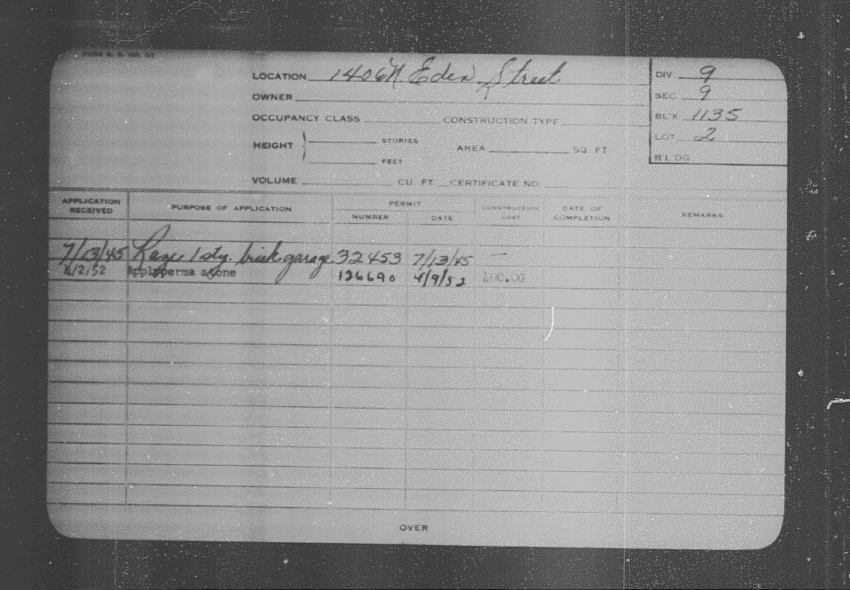 LOCATION 1406 N. Eden Street
OWNER
OCCUPANCY CLASS CONSTRUCTION TYPE
HEIGHT STORIES
FEET
AREA SQ. FT.
VOLUME CU. FT. CERTIFICATE NO.
DIV 9
SEC 9
BL'K 1135
LOT 2
B'LDG
APPLICATION RECEIVED PURPOSE OF APPLICATION PERMIT NUMBER DATE CONSTRUCTION COST DATE OF COMPLETION REMARKS
7/13/45 Raze 1 sty. brick garage 32453 7/13/45 —
4/2/52 Apply perma stone 126690 4/9/52 400.00
OVER